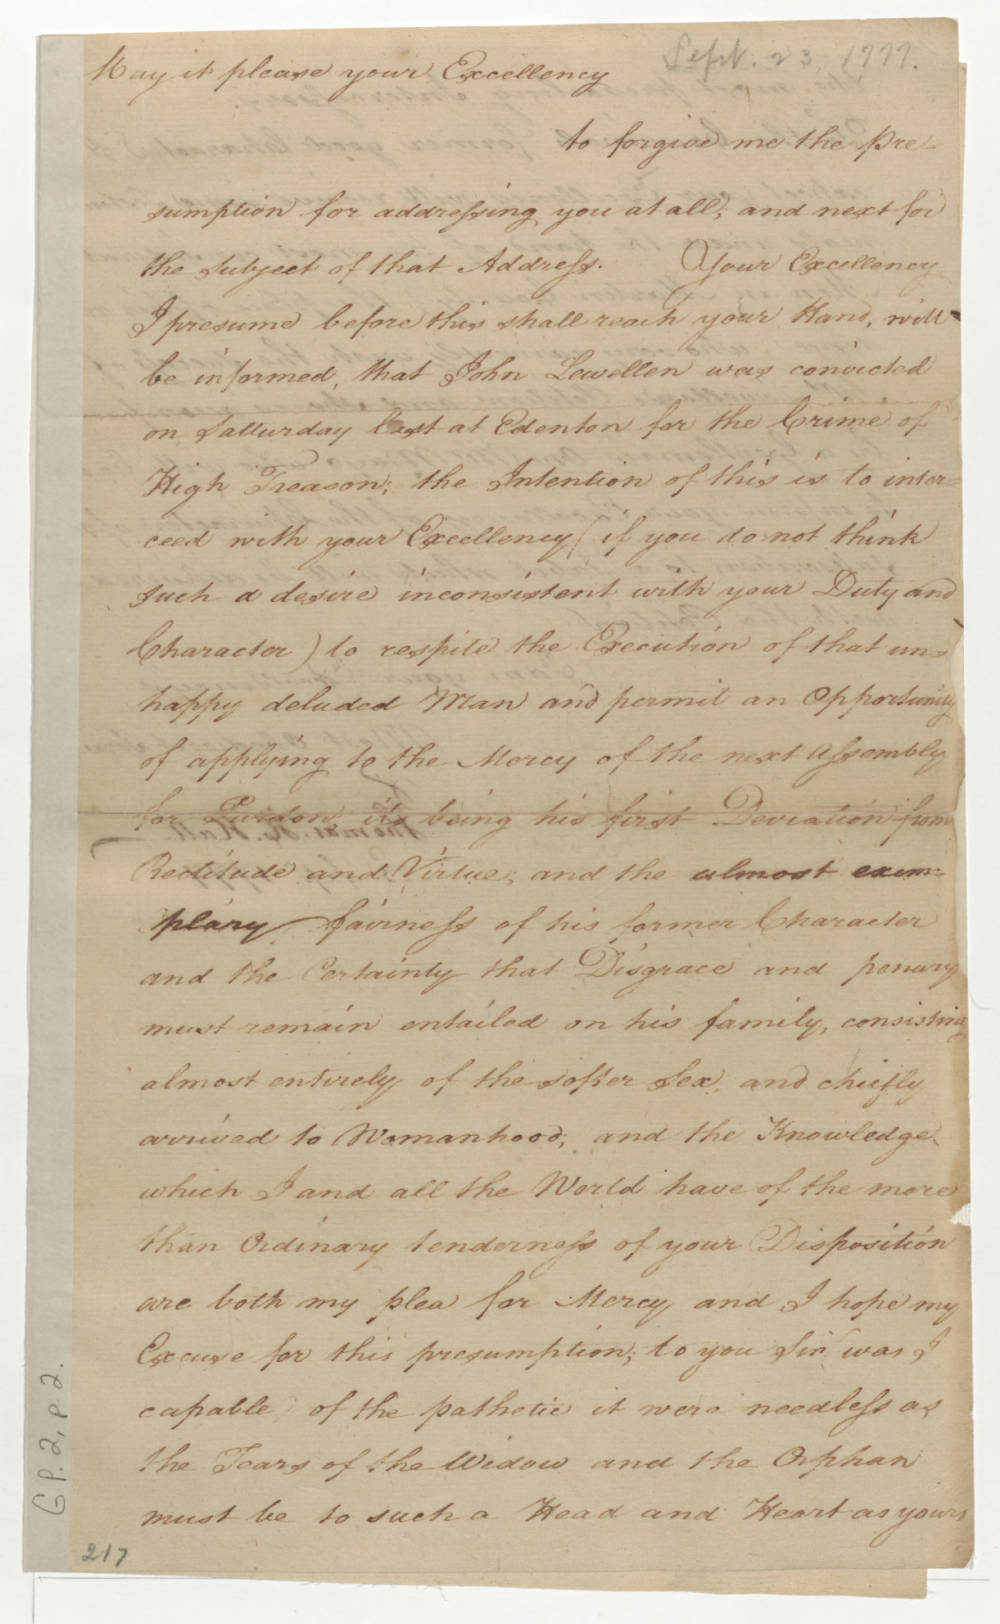 Sept. 23, 1777.
May it please your Excellency
to forgive me the pre-
sumption for addressing you at all; and next for
the Subject of that Address. Your Excellency
I presume before this shall reach your Hand, will
be informed, that John Lewellen was convicted
on Satturday last at Edenton for the Crime of
High Treason; the Intention of this is to inter=
ceed with your Excellency (if you do not think
such a desire inconsistent with your Duty and
Character) to respite the Execution of that un=
happy deluded Man and permit an Opportunity
of applying to the Mercy of the next Assembly
for Pardon, its being his first Deviation from
Rectitude and Virtue, and the almost exem-
plary fairness of his former Character
and the Certainty that Disgrace and penury
must remain entailed on his family, consisting
almost entirely of the softer Sex, and chiefly
arrived to Womanhood; and the Knowledge
which I and all the World have of the more
than Ordinary tenderness of your Disposition
are both my plea for Mercy and I hope my
Excuse for this presumption; to you Sir was I
capable of the pathetic it were needless as
the Tears of the Widow and the Orphan
must be to such a Head and Heart as yours
G.P. 2, p. 2.
217